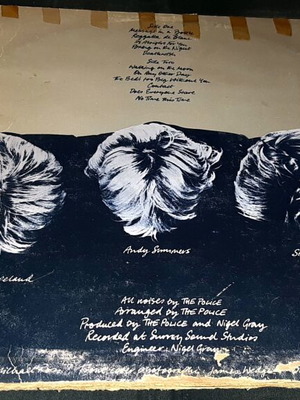 Side One
Message in a Bottle
Reggatta de Blanc
It's Alright for You
Bring on the Night
Deathwish
Side Two
Walking on the Moon
On Any Other Day
The Bed's too Big Without You
Contact
Does Everyone Stare
No Time This Time
Andy Summers
eland
S
All noises by THE POLICE
Arranged by THE POLICE
Produced by THE POLICE and Nigel Gray
Recorded at Surrey Sound Studios
Engineer: Nigel Gray
Michael Ross Front cover photography: James